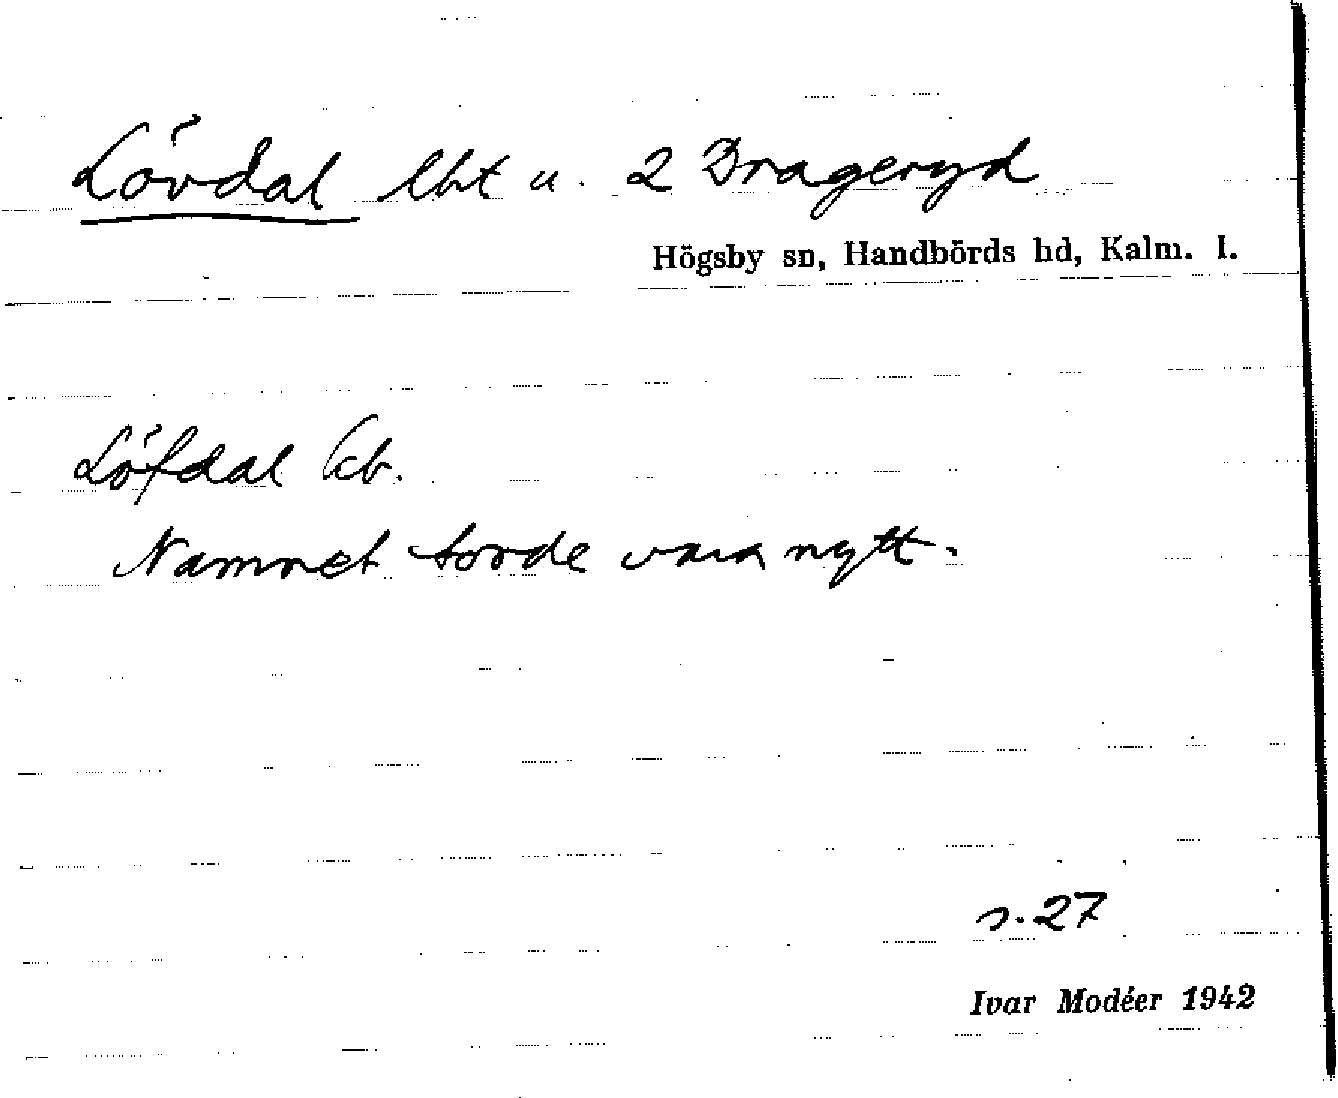 Lövdal lht u. 2 Drageryd
Högsby sn, Handbörds hd, Kalm. l.
Löfdal kb.
Namnet torde vara nytt.
s. 27
Ivar Modéer 1942